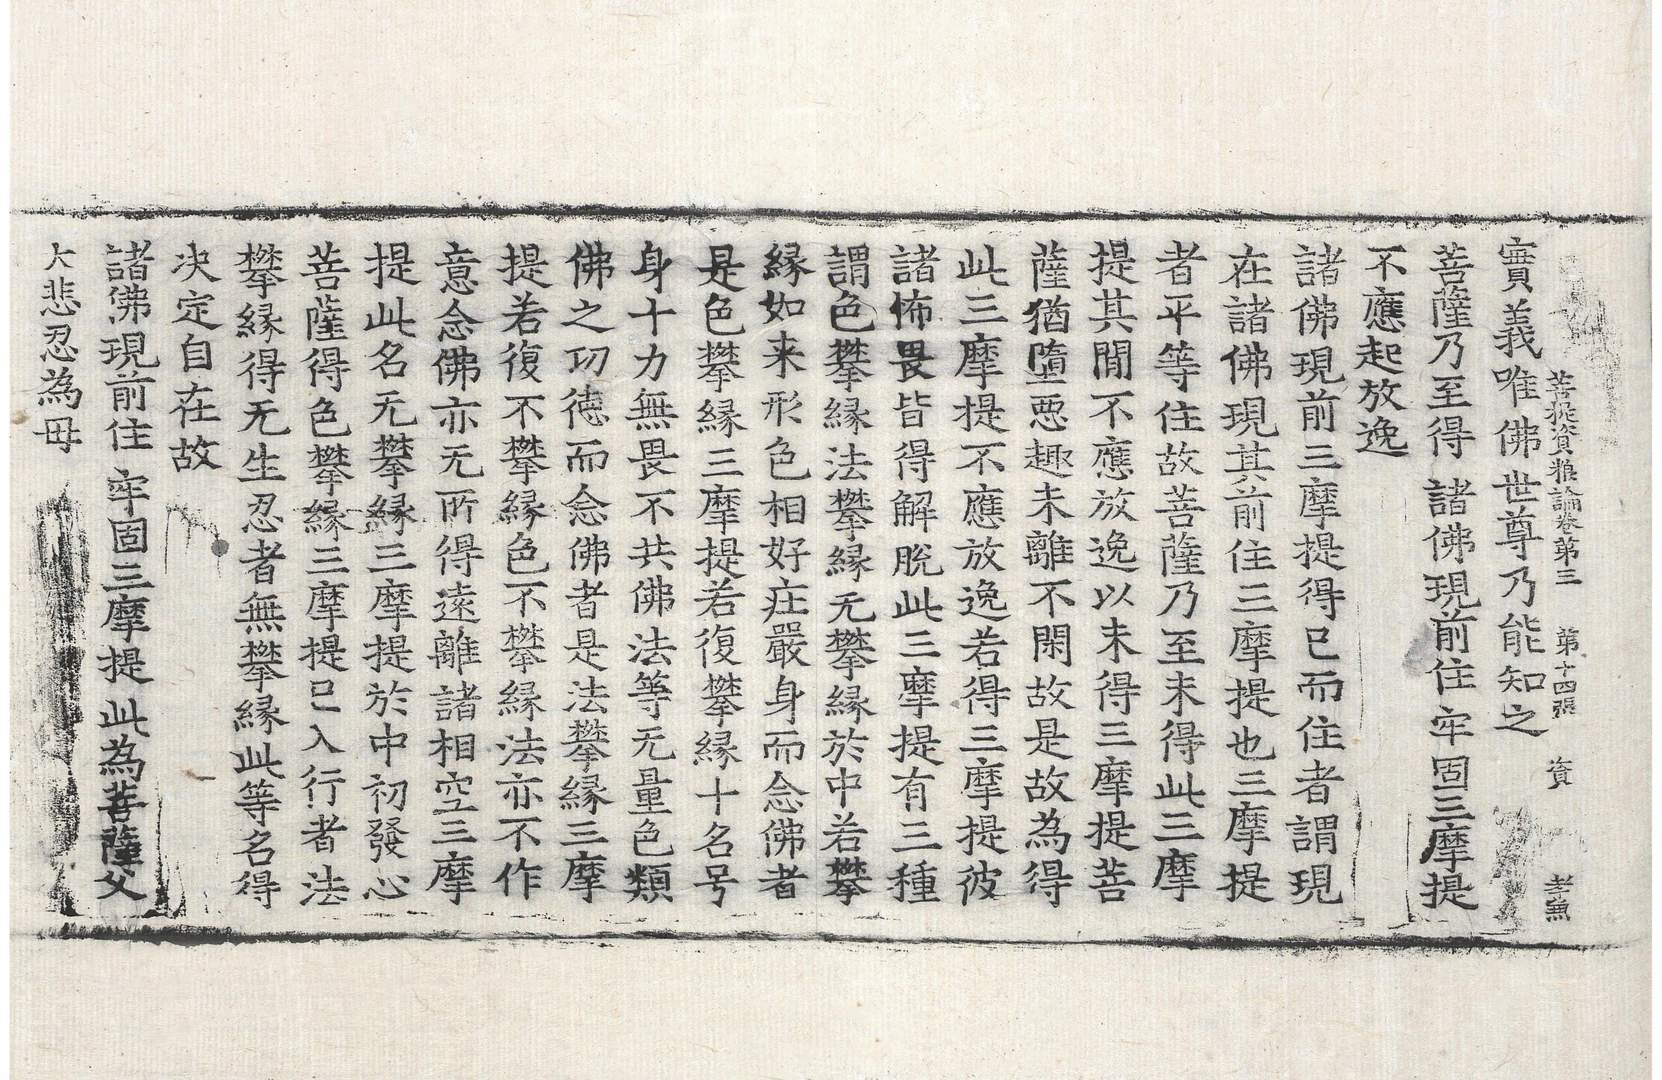 菩提資粮論卷第三 第十四張 資 孝無
實義唯佛世尊乃能知之
菩薩乃至得 諸佛現前住 牢固三摩提
不應起放逸
諸佛現前三摩提得已而住者謂現
在諸佛現其前住三摩提也三摩提
者平等住故菩薩乃至未得此三摩
提其間不應放逸以未得三摩提菩
薩猶墮悪趣未離不閑故是故為得
此三摩提不應放逸若得三摩提彼
諸怖畏皆得解脫此三摩提有三種
謂色攀縁法攀縁无攀縁於中若攀
縁如来形色相好庄嚴身而念佛者
是色攀縁三摩提若復攀縁十名号
身十力無畏不共佛法等无量色類
佛之功徳而念佛者是法攀縁三摩
提若復不攀縁色不攀縁法亦不作
意念佛亦无所得逺離諸相空三摩
提此名无攀縁三摩提於中初發心
菩薩得色攀縁三摩提已入行者法
攀縁得无生忍者無攀縁此等名得
决定自在故
諸佛現前住 牢固三摩提 此為菩薩父
大悲忍為母